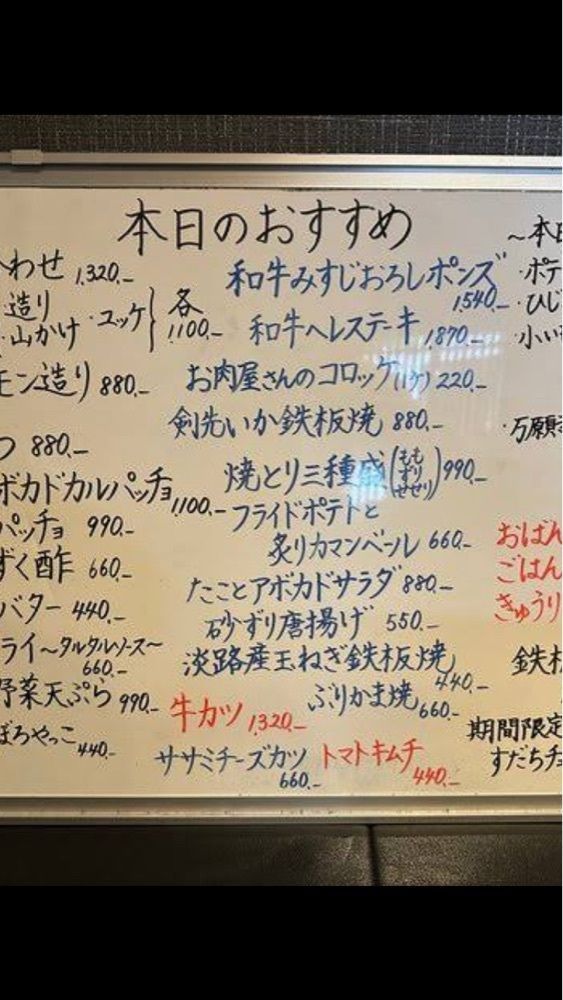 本日のおすすめ
わせ 1,320.-
造り
山かけ ・ユッケ } 各 1,100.-
モン造り 880.-
つ 880.-
ボカドカルパッチョ 1,100.-
パッチョ 990.-
ずく酢 660.-
バター 440.-
ライ〜タルタルソース〜
660.-
野菜天ぷら 990.-
ぼろやっこ 440.-
和牛みすじおろしポンズ
1,540.-
和牛ヘレステーキ 1,870.-
お肉屋さんのコロッケ(1ケ) 220.-
剣先いか鉄板焼 880.-
焼とり三種盛(もも ずり せせり) 990.-
フライドポテトと
炙りカマンベール 660.-
たことアボカドサラダ 880.-
砂ずり唐揚げ 550.-
淡路産玉ねぎ鉄板焼
440.-
ぶりかま焼 660.-
牛カツ 1,320.-
ササミチーズカツ
660.-
トマトキムチ
440.-
〜本日
・ポテ
・ひじ
・小い
・万願
おばん
ごはん
きゅうり
鉄板
期間限定
すだちチ